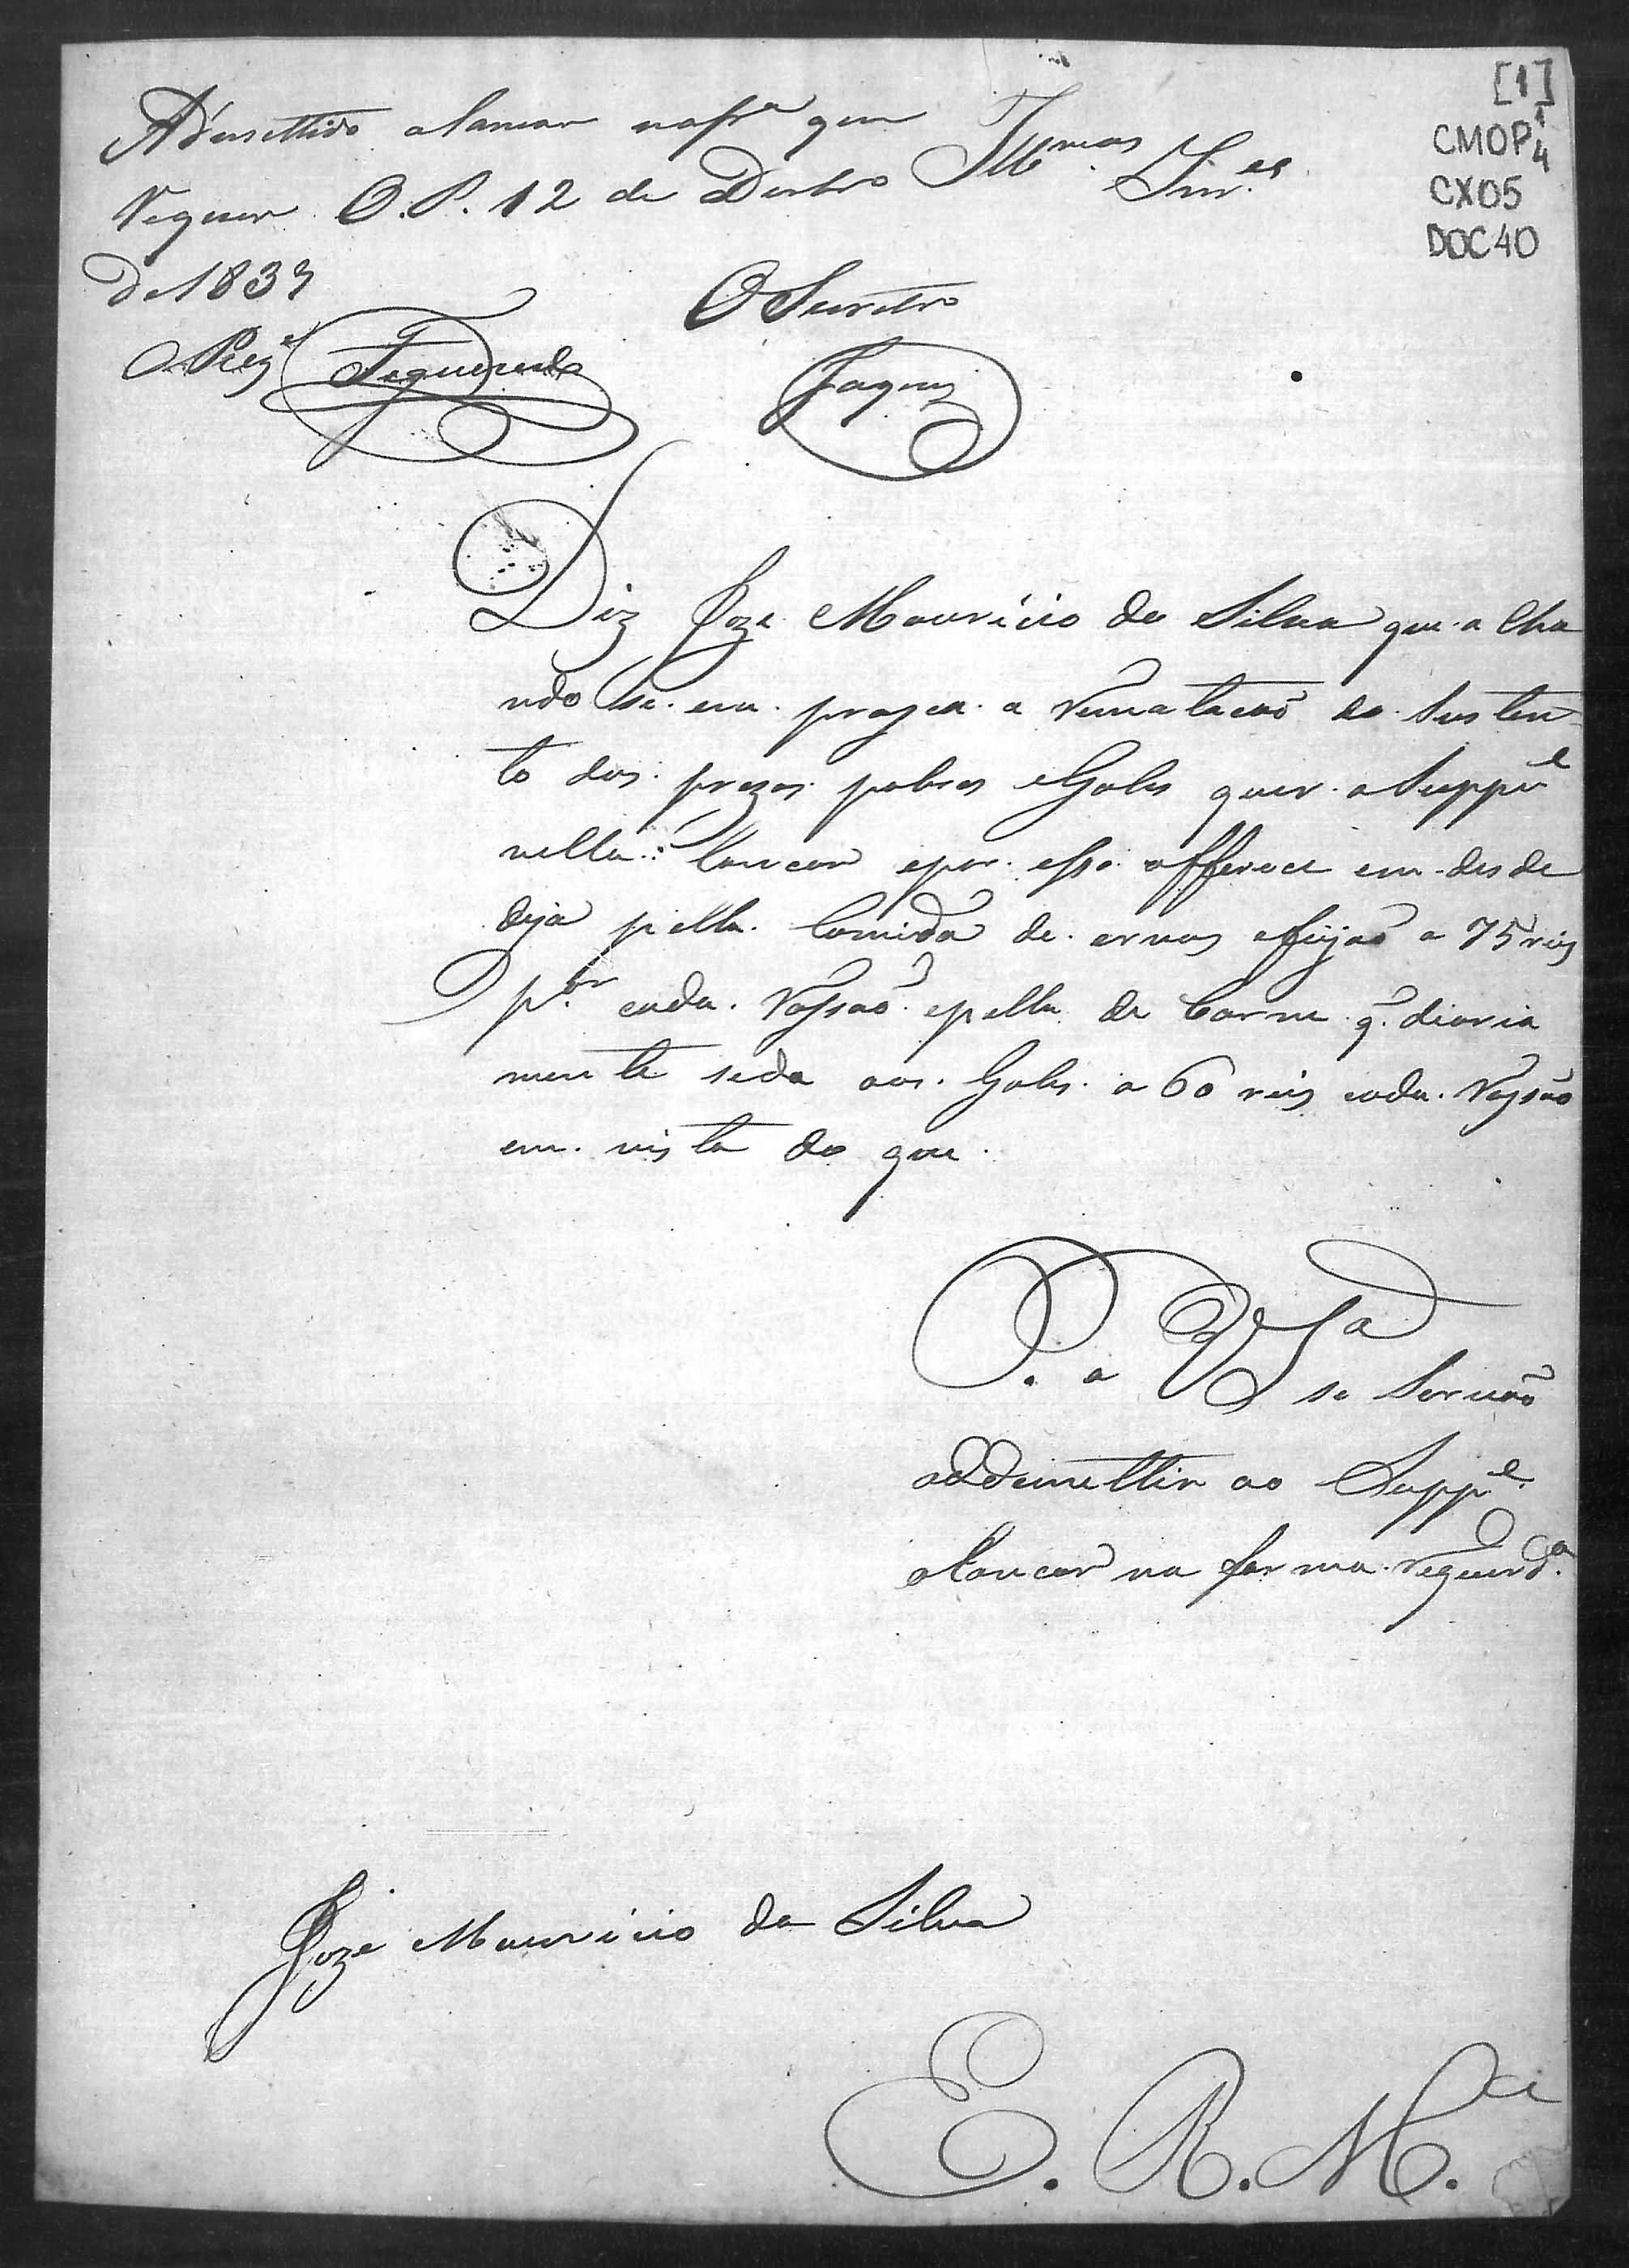 [1]
CMOP 1
4
CX05
DOC40
Admettido a lancar na fr.ª que
Requer O. P. 12 de Dezbro
De 1837
O Prez.e Figueiredo
Ill.mos Snr.es
O Secretro
Diz Joze Mauricio da Silva que a Cha
ndo se. em. praça. a Rematacaõ do. Susten
to dos. prezos. pobres e Gales quer. o Supp.e
nella. lancar e por. esso. offerece em. des de
deja pella. Comida de. ervas e feijaõ a 75 reis
p.or cada. Rassaõ. e pella de Carne q. diaria
mente se da aos. Gales. a 60 reis cada. Rassaõ
em. vista do que.
P. a VSª
se Servaõ
addemettir ao Supp.e
a lancar na forma. requerd.ª
Joze Mauricio da Silva
E. R. M.ce